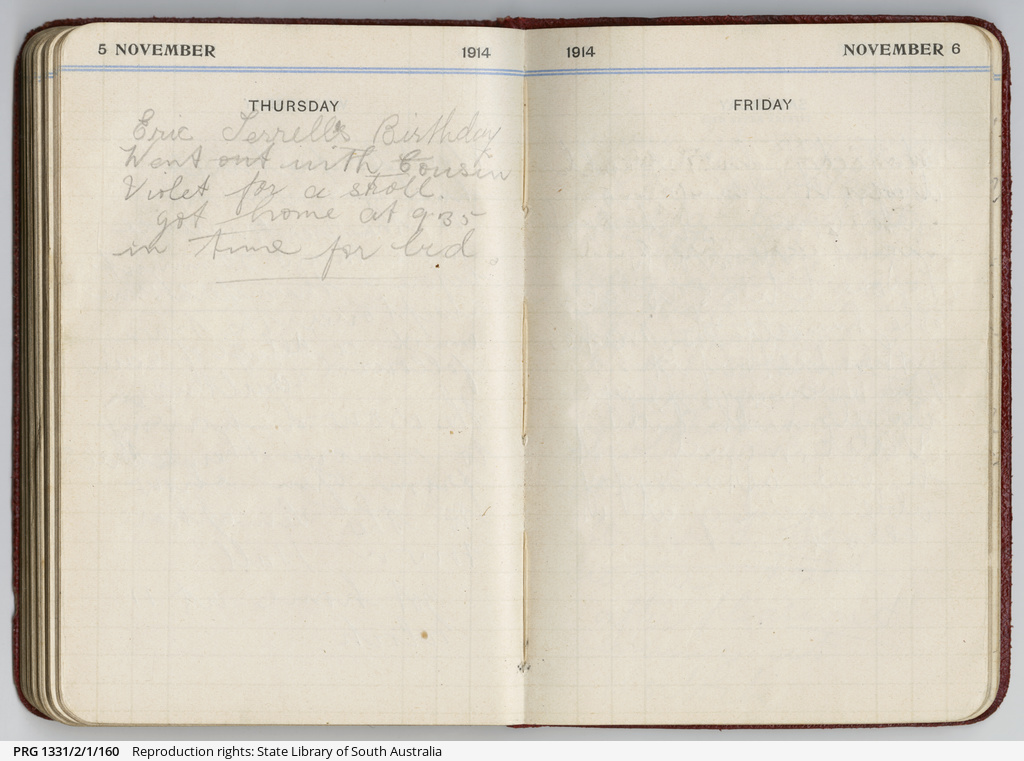 5 NOVEMBER 1914
THURSDAY
Eric Terrell's Birthday
Went out with Cousin
Violet for a stroll.
got home at 9.35
in time for bed.
1914 NOVEMBER 6
FRIDAY
PRG 1331/2/1/160 Reproduction rights: State Library of South Australia